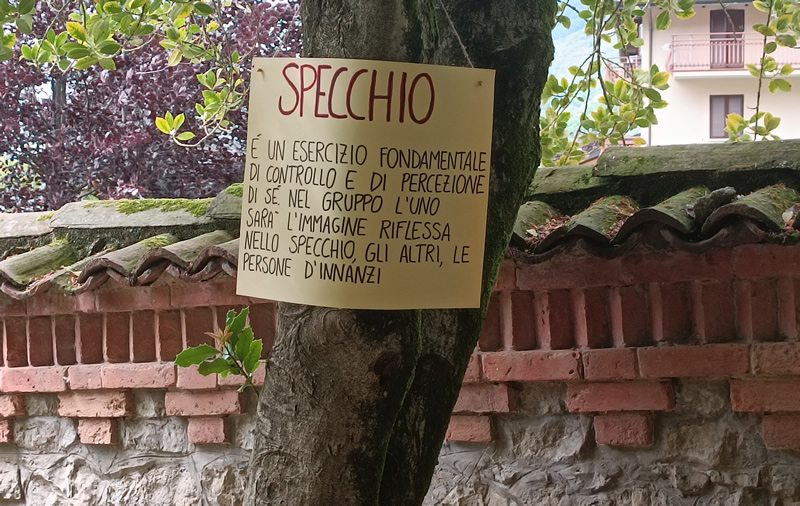 SPECCHIO
É UN ESERCIZIO FONDAMENTALE
DI CONTROLLO E DI PERCEZIONE
DI SÉ. NEL GRUPPO L'UNO
SARA' L'IMMAGINE RIFLESSA
NELLO SPECCHIO, GLI ALTRI, LE
PERSONE D'INNANZI